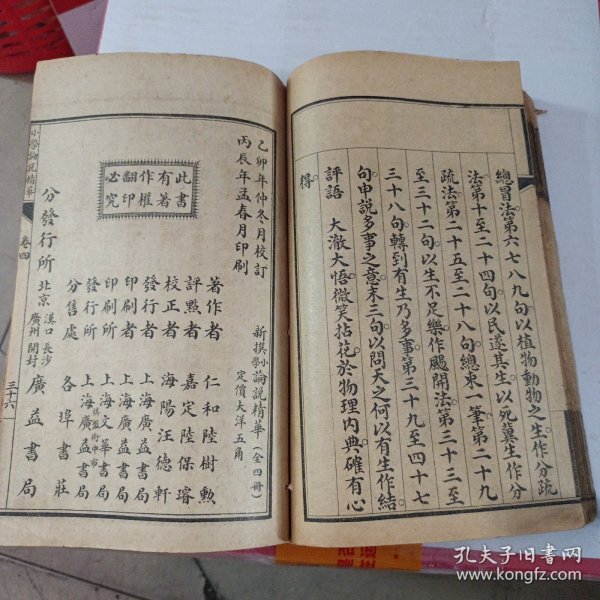 總冒法第六七八九句以植物動物之生作分疏
法第十至二十四句以民遂其生以死冀生作分
疏法第二十五至二十八句總束一筆第二十九
至三十二句以生不足樂作颺開法第三十三至
三十八句轉到有生乃多事第三十九至四十七
句申說多事之意末三句以問天之何以有生作結
評語 大澈大悟微笑拈花於物理內典確有心
得
乙卯年仲冬月校訂
丙辰年孟春月印刷
此書
有著
作權
翻印
必究
新撰小學論說精華(全四冊)
定價大洋五角
著作者 仁和陸樹勳
評點者 嘉定陸保璿
校正者 海陽汪德軒
發行者 上海廣益書局
印刷者 上海廣益書局
印刷所 上海文華書局
發行所 上海廣益書局
分售處 各埠書莊
分發行所 北京 漢口 長沙 廣州 開封 廣益書局
小學論說精華
卷四
三十六
孔夫子旧书网
www.kongfz.com